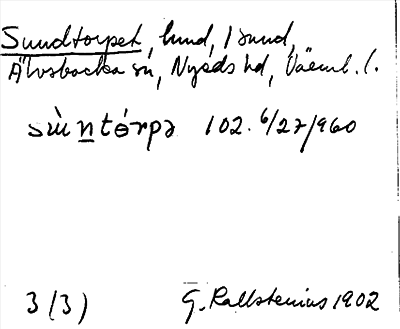 Sundtorpet, hmd, 1 sund,
Älvsbacka sn, Nyeds hd, Värml. l.
sùntórpə 102. 6/27/960
3 (3) G. Kallstenius 1902